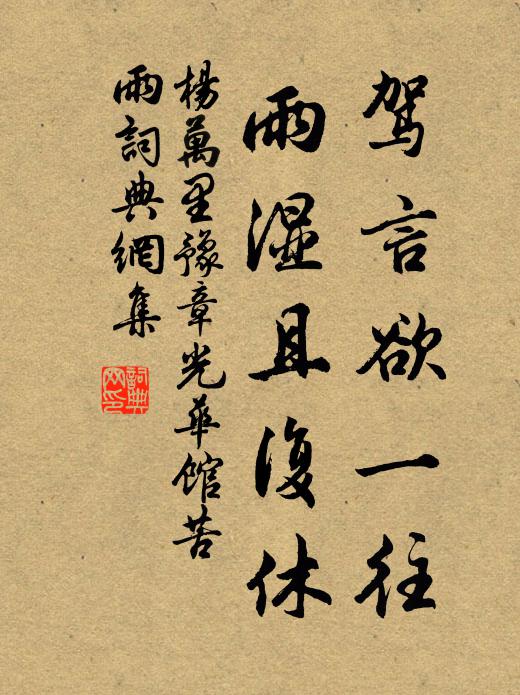 驾言欲一往
雨湿且复休
楊萬里豫章光華館苦
雨詞典網集
詞典
网印